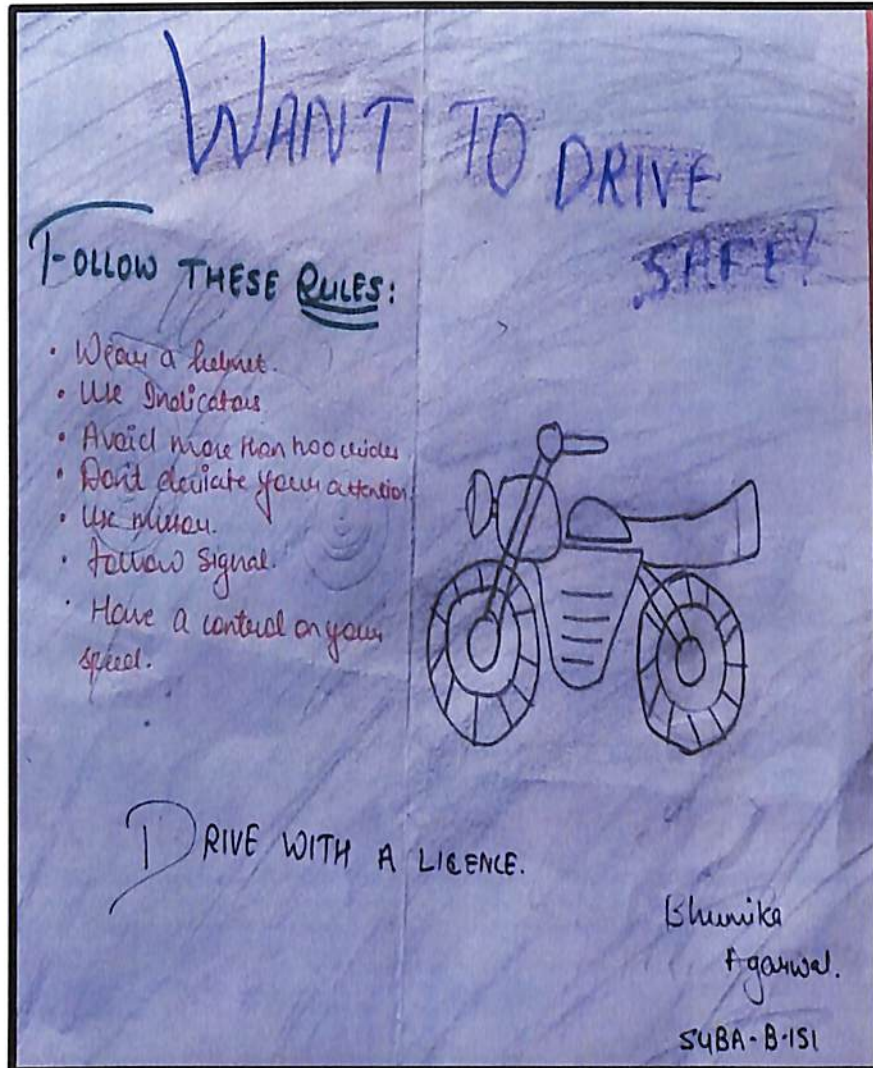 WANT TO DRIVE
SAFE?
FOLLOW THESE RULES:
• Wear a helmet.
• Use Indicators
• Avoid more than two rides
• Don't deviate your attention.
• Use mirror.
• Follow signal.
• Have a control on your
speed.
DRIVE WITH A LICENCE.
Bhumika
Agarwal.
SYBA-B-151